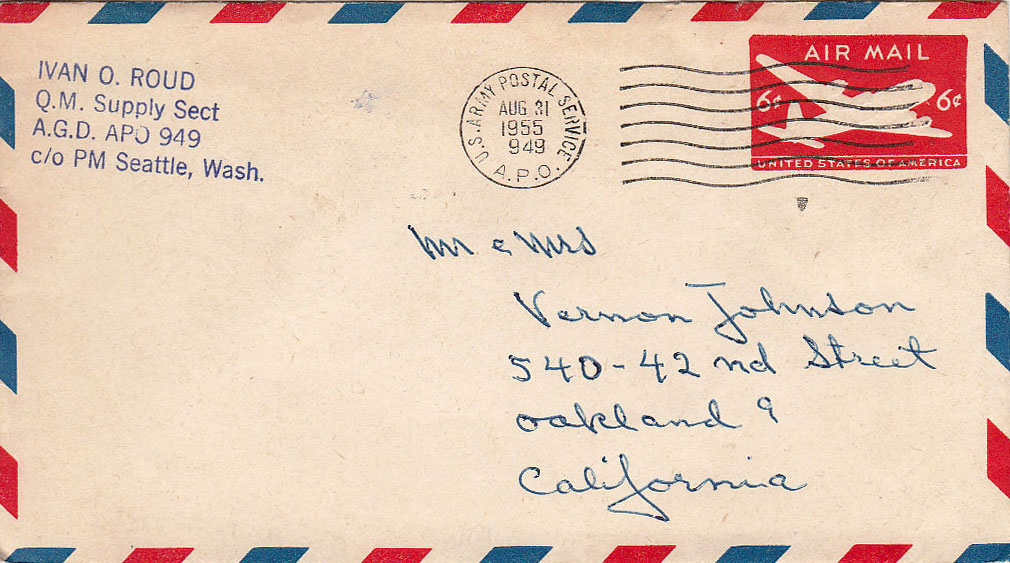 IVAN O. ROUD
Q.M. Supply Sect
A.G.D. APO 949
c/o PM Seattle, Wash.
U.S. ARMY POSTAL SERVICE
AUG 31
1955
949
A.P.O.
AIR MAIL
6¢ 6¢
UNITED STATES OF AMERICA
Mr & Mrs
Vernon Johnson
540-42nd Street
Oakland 9
California